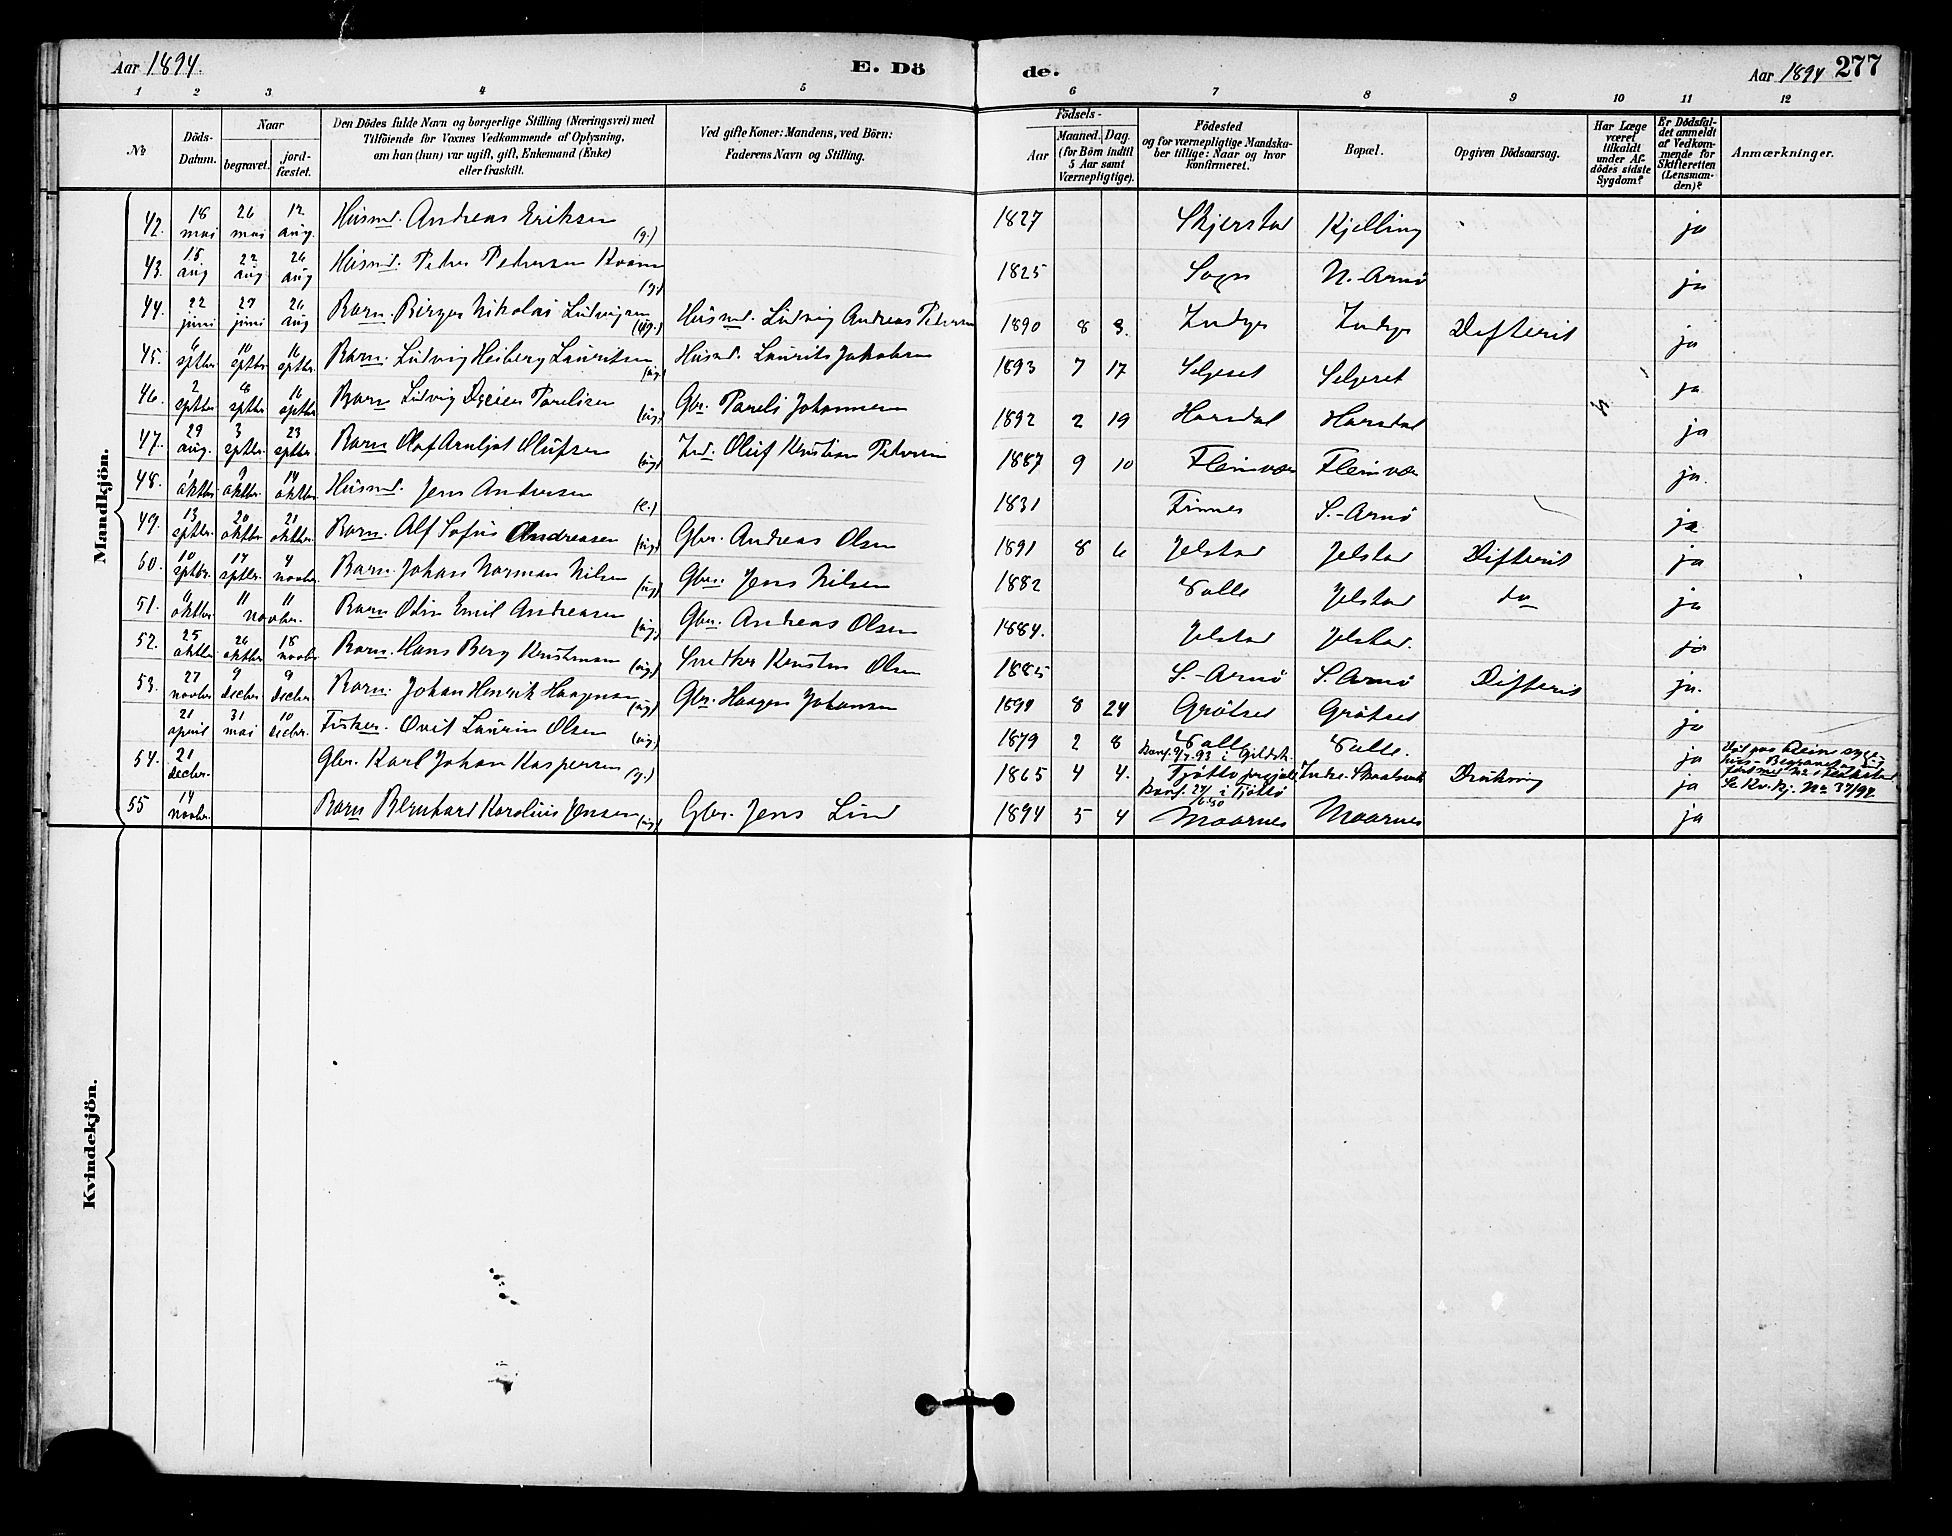 Aar 1894. E. Dö de. Aar 1894 277
1 2 3 4 5 6 7 8 9 10 11 12
No
Döds-Datum.
Naar
begravet. jord-fæstet.
Den Dödes fulde Navn og borgerlige Stilling (Næringsvei) med
Tilföiende for Voxnes Vedkommende af Oplysning,
om han (hun) var ugift, gift, Enkemand (Enke)
eller fraskilt.
Ved gifte Koner: Mandens, ved Börn:
Faderens Navn og Stilling.
Födsels-
Aar Maaned. Dag.
(for Börn indtil
5 Aar samt
Værnepligtige).
Födested
og for værnepligtige Mandska-
ber tillige: Naar og hvor
konfirmeret.
Bopæl.
Opgiven Dödsaarsag.
Har Læge
været
tilkaldt
under Af-
dödes sidste
Sygdom?
Er Dödsfal-
det anmeldt
af Vedkom-
mende for
Skifteretten
(Lensman-
den)?
Anmærkninger.
Mandkjön.
42. 18 mai 26 mai 12 aug. Husmd. Andreas Eriksen (g.) 1827 Skjerstad Kjelling ja
43. 15 aug 22 aug 26 aug Husmd. Peder Pedersen Kvam (g.) 1825 Sogn N.-Arnö ja
44. 22 juni 27 juni 26 aug Barn. Birger Nikolai Ludvigsen (ug.) Husmd. Ludvig Andreas Pedersen 1890 8 3. Indyr Indyr Difterit ja
45. 6 septbr. 10 septbr. 16 septbr. Barn. Ludvig Heiberg Lauritsen (ug.) Husmd. Laurits Jakobsen 1893 7 17 Selgeset Selgeset ja
46. 2 septbr. 8 septbr. 16 septbr. Barn Ludvig Parelisen (ug.) Gbr. Pareli Johannesen 1892 2 19 Horsdal Horsdal ja
47. 29 aug. 3 septbr. 23 septbr. Barn Olaf Arnljot Olufsen (ug.) Ind. Oluf Kristian Pedersen 1887 9 10 Fleinvær Fleinvær ja.
48. 1 oktbr. 9 oktbr. 14 oktbr. Husmd. Jens Andersen (e.) 1831 Finnes S.-Arnö ja.
49. 13 septbr. 20 oktbr. 21 oktbr. Barn. Alf Sofus Andreasen (ug.) Gbr. Andreas Olsen 1891 8 6 Jelstad Jelstad Difterit ja
50. 10 septbr. 17 septbr. 4 novbr. Barn. Johan Norman Nilsen (ug.) Gbr. Jens Nilsen 1882 Valle Jelstad do ja
51. oktbr. 11 11 novbr. Barn Odin Emil Andreasen (ug.) Gbr. Andreas Olsen 1884. Jelstad Jelstad. ja
52. 25 oktbr. 26 oktbr. 18 novbr Barn. Hans Berg Kristensen (ug.) Snedker Kristen Olsen 1885 S.-Arnö S. Arnö Difterit ja.
53. 27 novbr. 9 decbr. 9 decbr. Barn. Johan Henrik Haagensen (ug.) Gbr. Haagen Johansen 1894 8 24 Grötset Grötset ja
21 april 31 mai 10 decbr. Fisker. Ovit Laurin Olsen (ug.) 1879 2 8 Valle Konf. 9/7 93 i Gildsk. Valle. ja Död paa Rein syge-
hus - Begravet
54. 21 decbr. Gbr. Karl Johan Kaspersen (g.) 1865 4 4. Tjötta prgjeld Konf. i Tjöttö Indre-
Drukning ja Se Kv.kj. No 37/94.
55 14 novbr. Barn Bernhard Karolius Jensen (ug.) Gbr. Jens Lind 1894 5 4 Moarnes Moarnes ja
Kvindekjön.